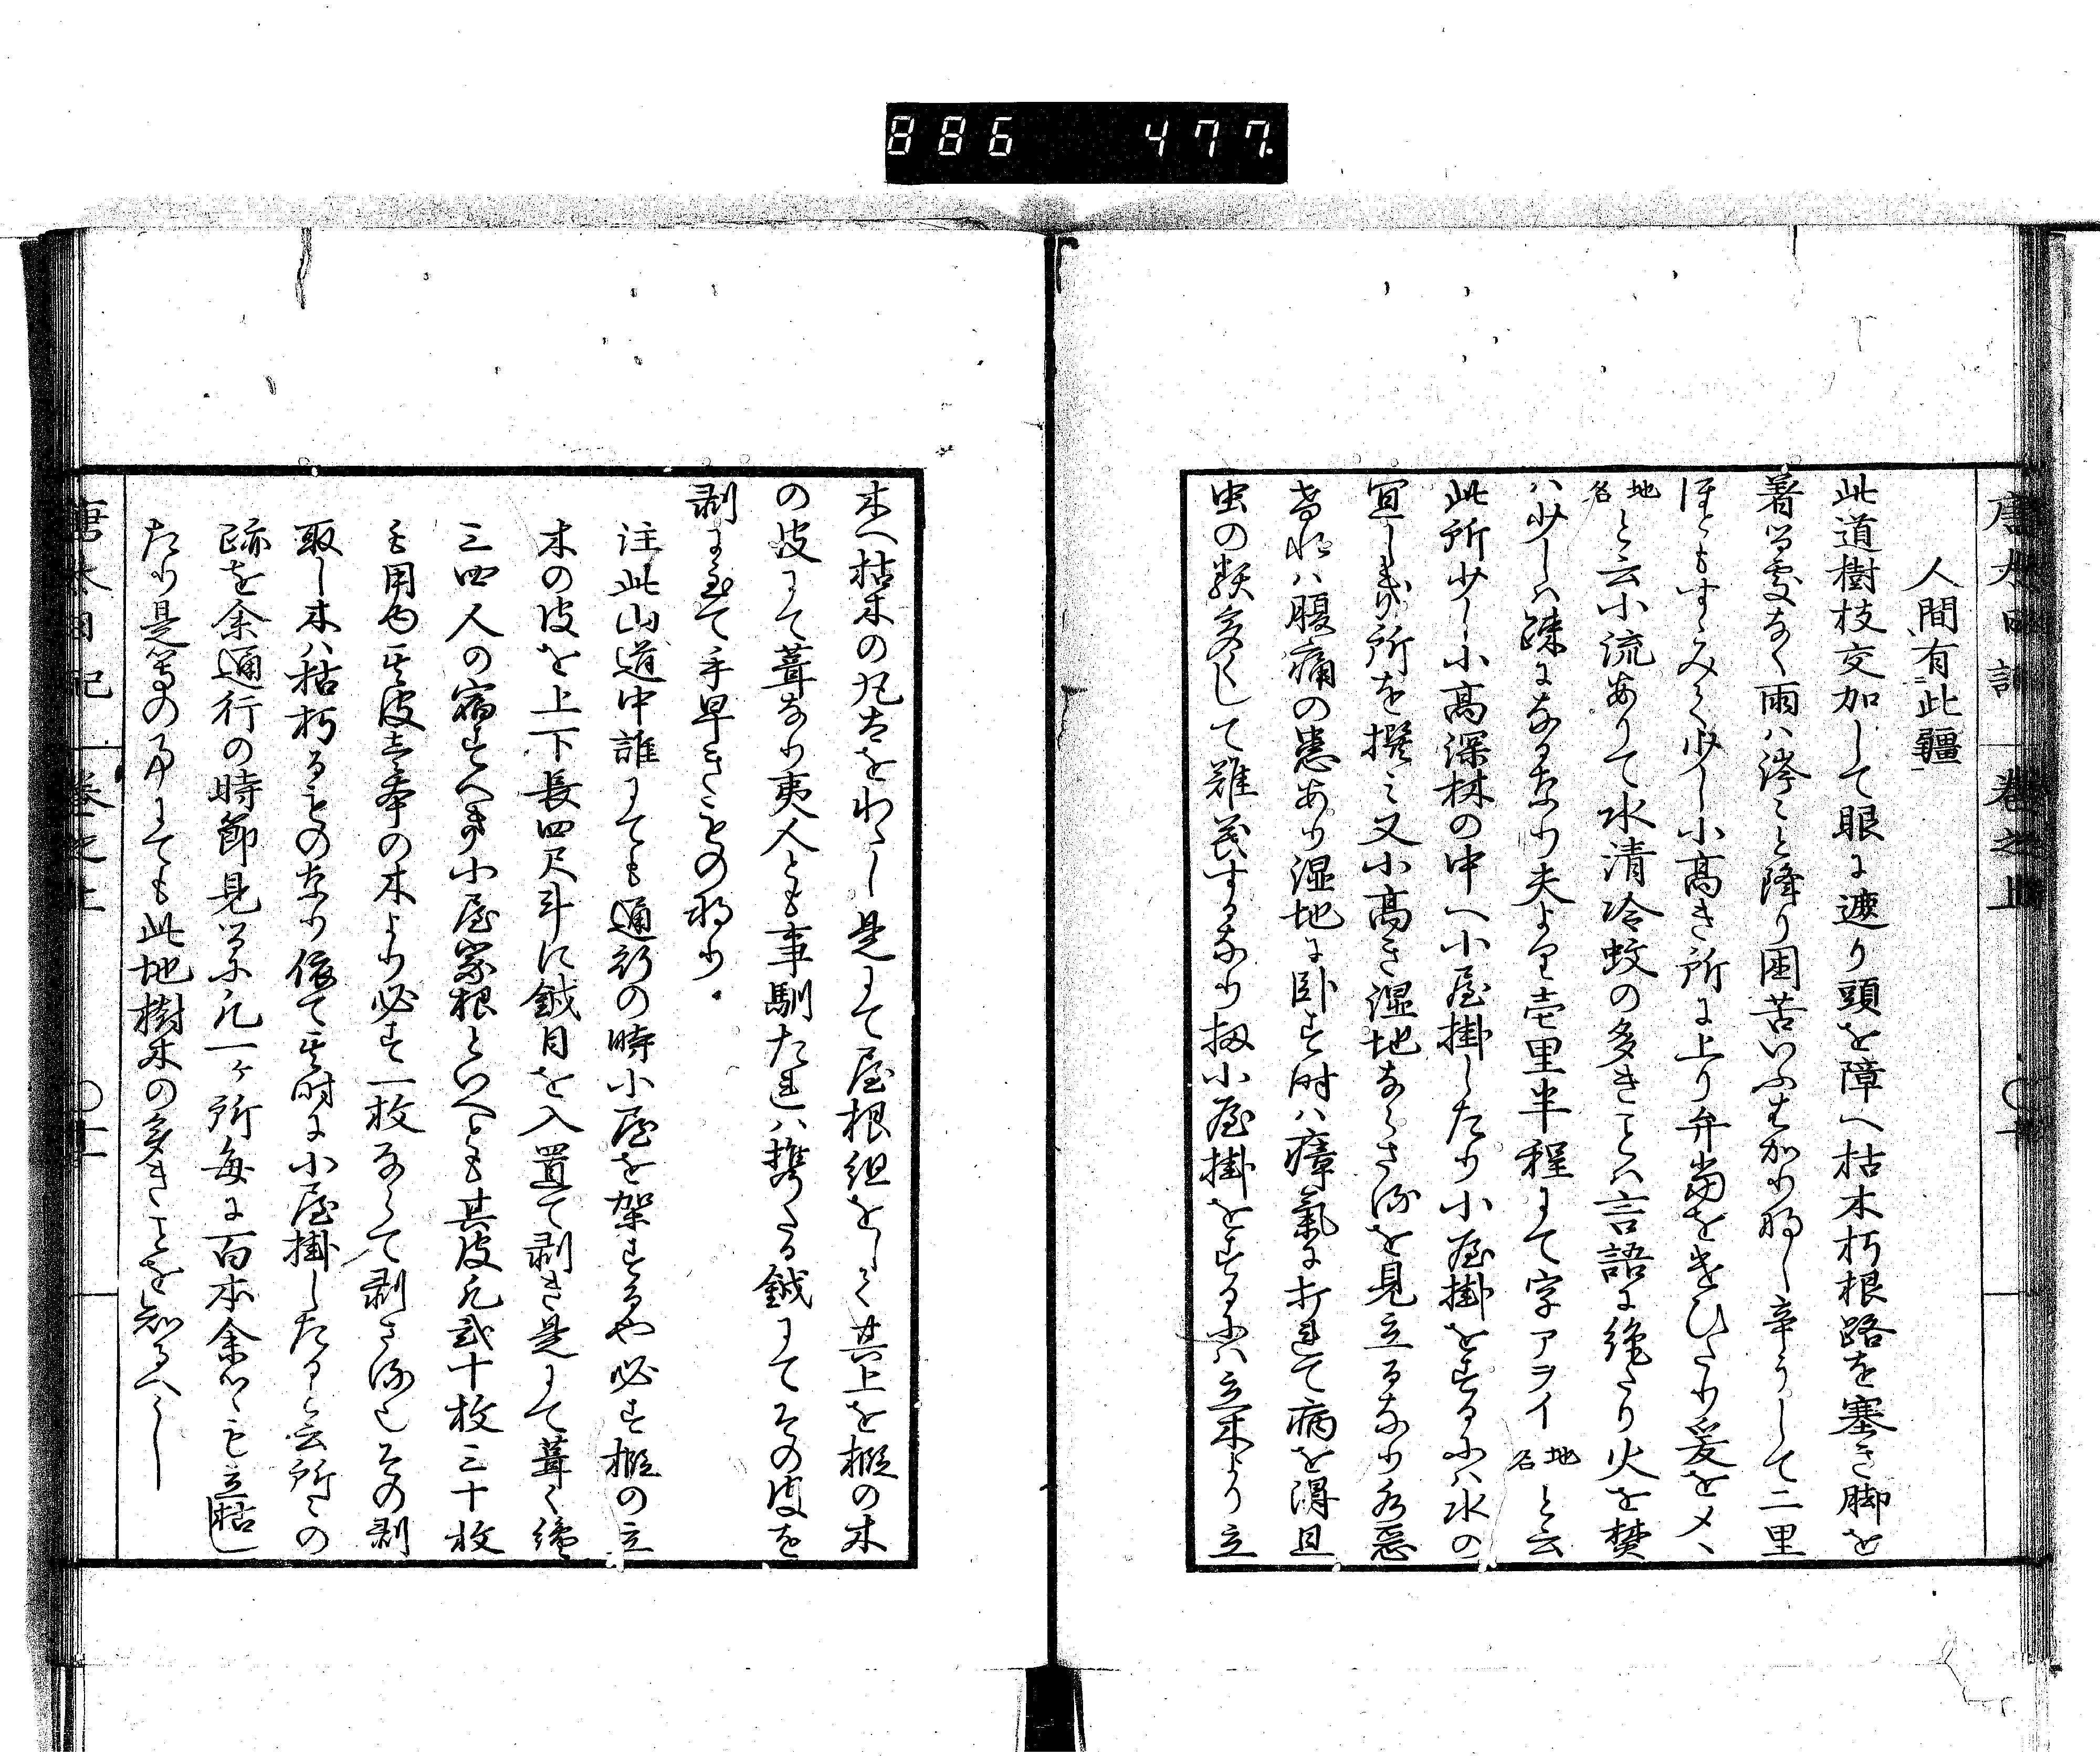 886 477
唐太日記 巻之上 〇十
人間有此疆
此道樹枝交加して眼に遮り頭を障へ枯木朽根路を塞き脚を
着る処なく雨ハ滂々と降り困苦いふはかりなし辛うして二里
ほともすゝみて少し小高き所に上り弁当をひらき
地名と云小流ありて水清冷蚊の多きことハ言語に絶たり火を焚
ハ少しハ疎になるなり夫より壱里半程にて字アヲイ地名と云
此所少し小高深林の中へ小屋掛したり小屋掛をするにハ水の
宜しき所を撰み又小高き湿地ならさる所を見立るなり水悪
けれハ腹痛の患あり湿地に臥す時ハ瘴氣に打れて病を得且
虫の類多くして難義するなり扨小屋掛をするにハ立木より立
木へ枯木の丸太をわたし是にて屋根組をして其上を椴の木
の皮にて葺なり夷人とも事馴たれハ携たる鉞にてその皮を
剥にいたつて手早きものなり
注此山道中誰にても通行の時小屋を架するや必す椴の立
木の皮を上下長四尺斗に鉞目を入置て剥き是にて葺く纔
三四人の宿すへき小屋家根といへとも其皮凡弐十枚三十枚
も用ゆ其皮壱本の木より必す一枚ならて剥さる也その剥
取し木ハ枯朽るものなり依て其時に小屋掛したりと云所々の
跡を余通行の時節見るに凡一ヶ所毎に百本余つゝも立枯し
たり是等の事にても此地樹木の多きことを知るへし
唐太日記 巻之上